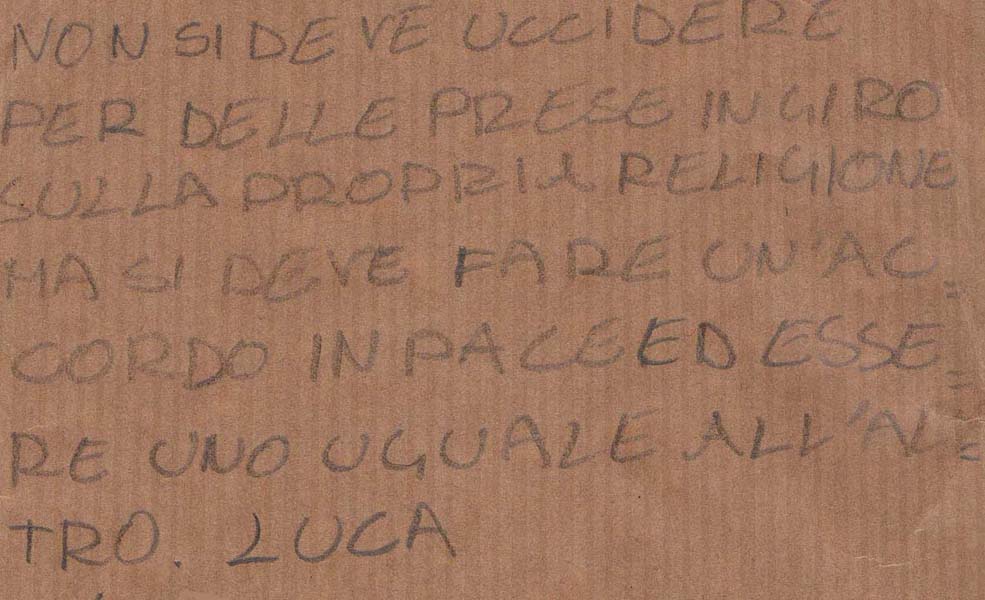 NON SI DEVE UCCIDERE
PER DELLE PRESE IN GIRO
SULLA PROPRIA RELIGIONE
MA SI DEVE FARE UN'AC=
CORDO IN PACE ED ESSE=
RE UNO UGUALE ALL'AL=
TRO. LUCA